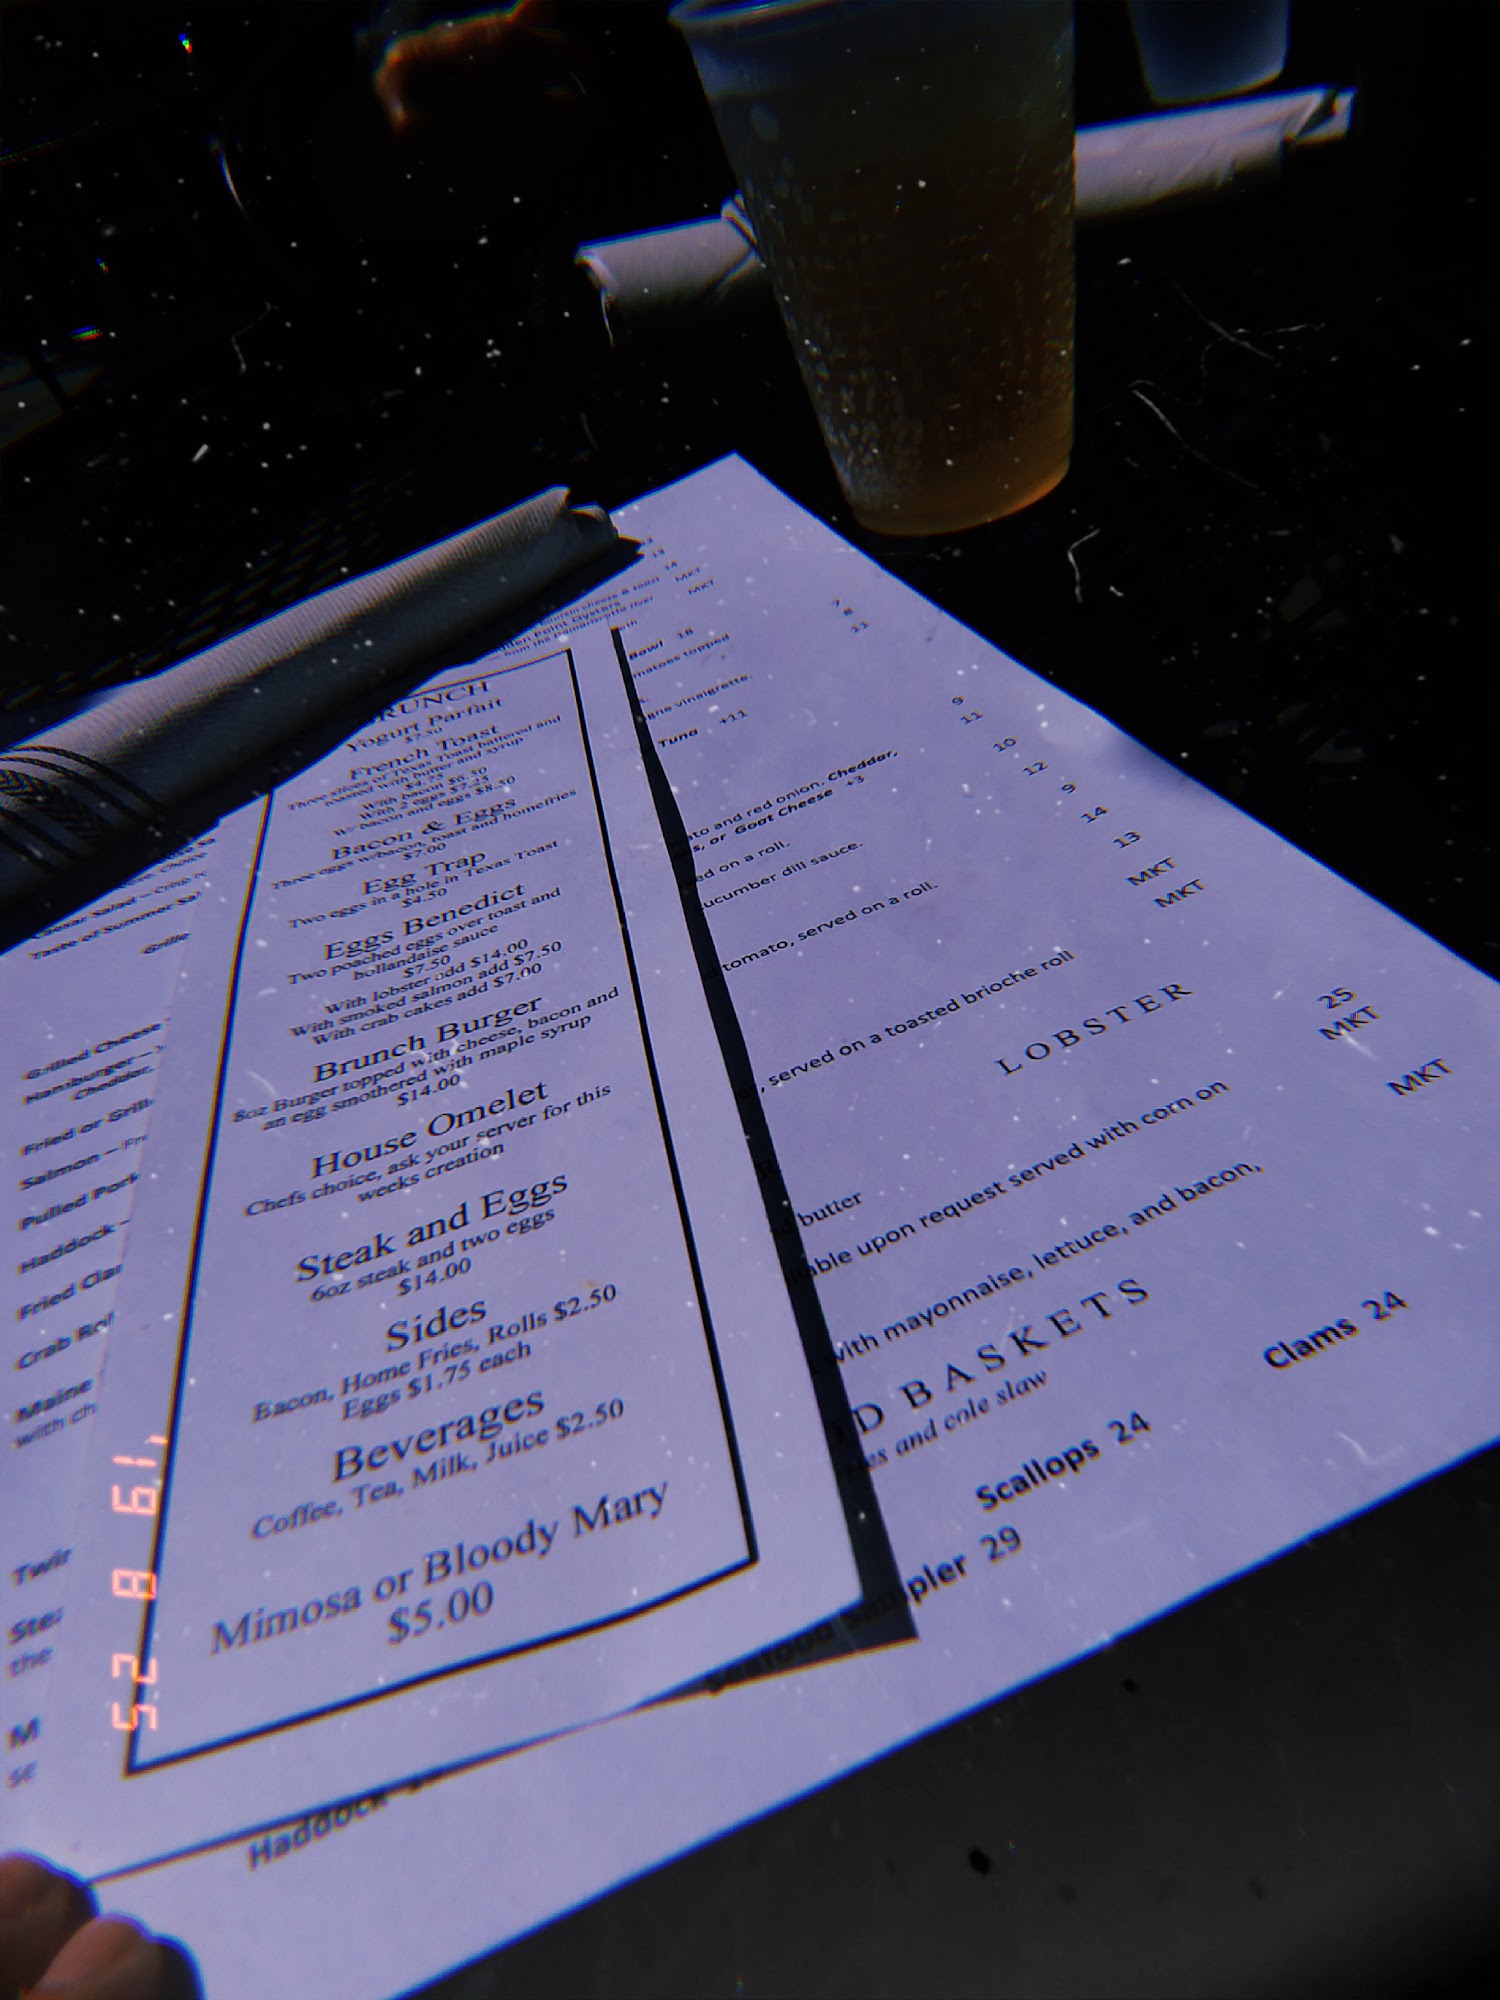 BRUNCH
Yogurt Parfait
$7.50
French Toast
Three slices of Texas Toast battered and
toasted with butter and syrup
$4.75
With bacon $6.50
With 2 eggs $7.25
W/ bacon and eggs $8.50
Bacon & Eggs
Three eggs w/bacon, toast and homefries
$7.00
Egg Trap
Two eggs in a hole in Texas Toast
$4.50
Eggs Benedict
Two poached eggs over toast and
hollandaise sauce
$7.50
With lobster add $14.00
With smoked salmon add $7.50
With crab cakes add $7.00
Brunch Burger
8oz Burger topped with cheese, bacon and
an egg smothered with maple syrup
$14.00
House Omelet
Chefs choice, ask your server for this
weeks creation
Steak and Eggs
6oz steak and two eggs
$14.00
Sides
Bacon, Home Fries, Rolls $2.50
Eggs $1.75 each
Beverages
Coffee, Tea, Milk, Juice $2.50
Mimosa or Bloody Mary
$5.00
Caesar Salad – Crisp
Taste of Summer
Grilled Cheese
Hamburger –
Cheddar,
Fried or
Salmon –
Pulled Pork
Haddock –
Fried
Crab
Maine
with
the
13
14
MKT
MKT
from the Damariscotta river
Bowl 18
topped
vinaigrette.
Tuna +11
7
8
11
9
11
10
12
9
14
13
MKT
MKT
and red onion. Cheddar,
or Goat Cheese +3
on a roll.
cucumber dill sauce.
tomato, served on a roll.
served on a toasted brioche roll
LOBSTER
25
MKT
MKT
butter
upon request served with corn on
with mayonnaise, lettuce, and bacon,
BASKETS
and cole slaw
Clams 24
Scallops 24
Seafood Sampler 29
Haddock
52 8 61'